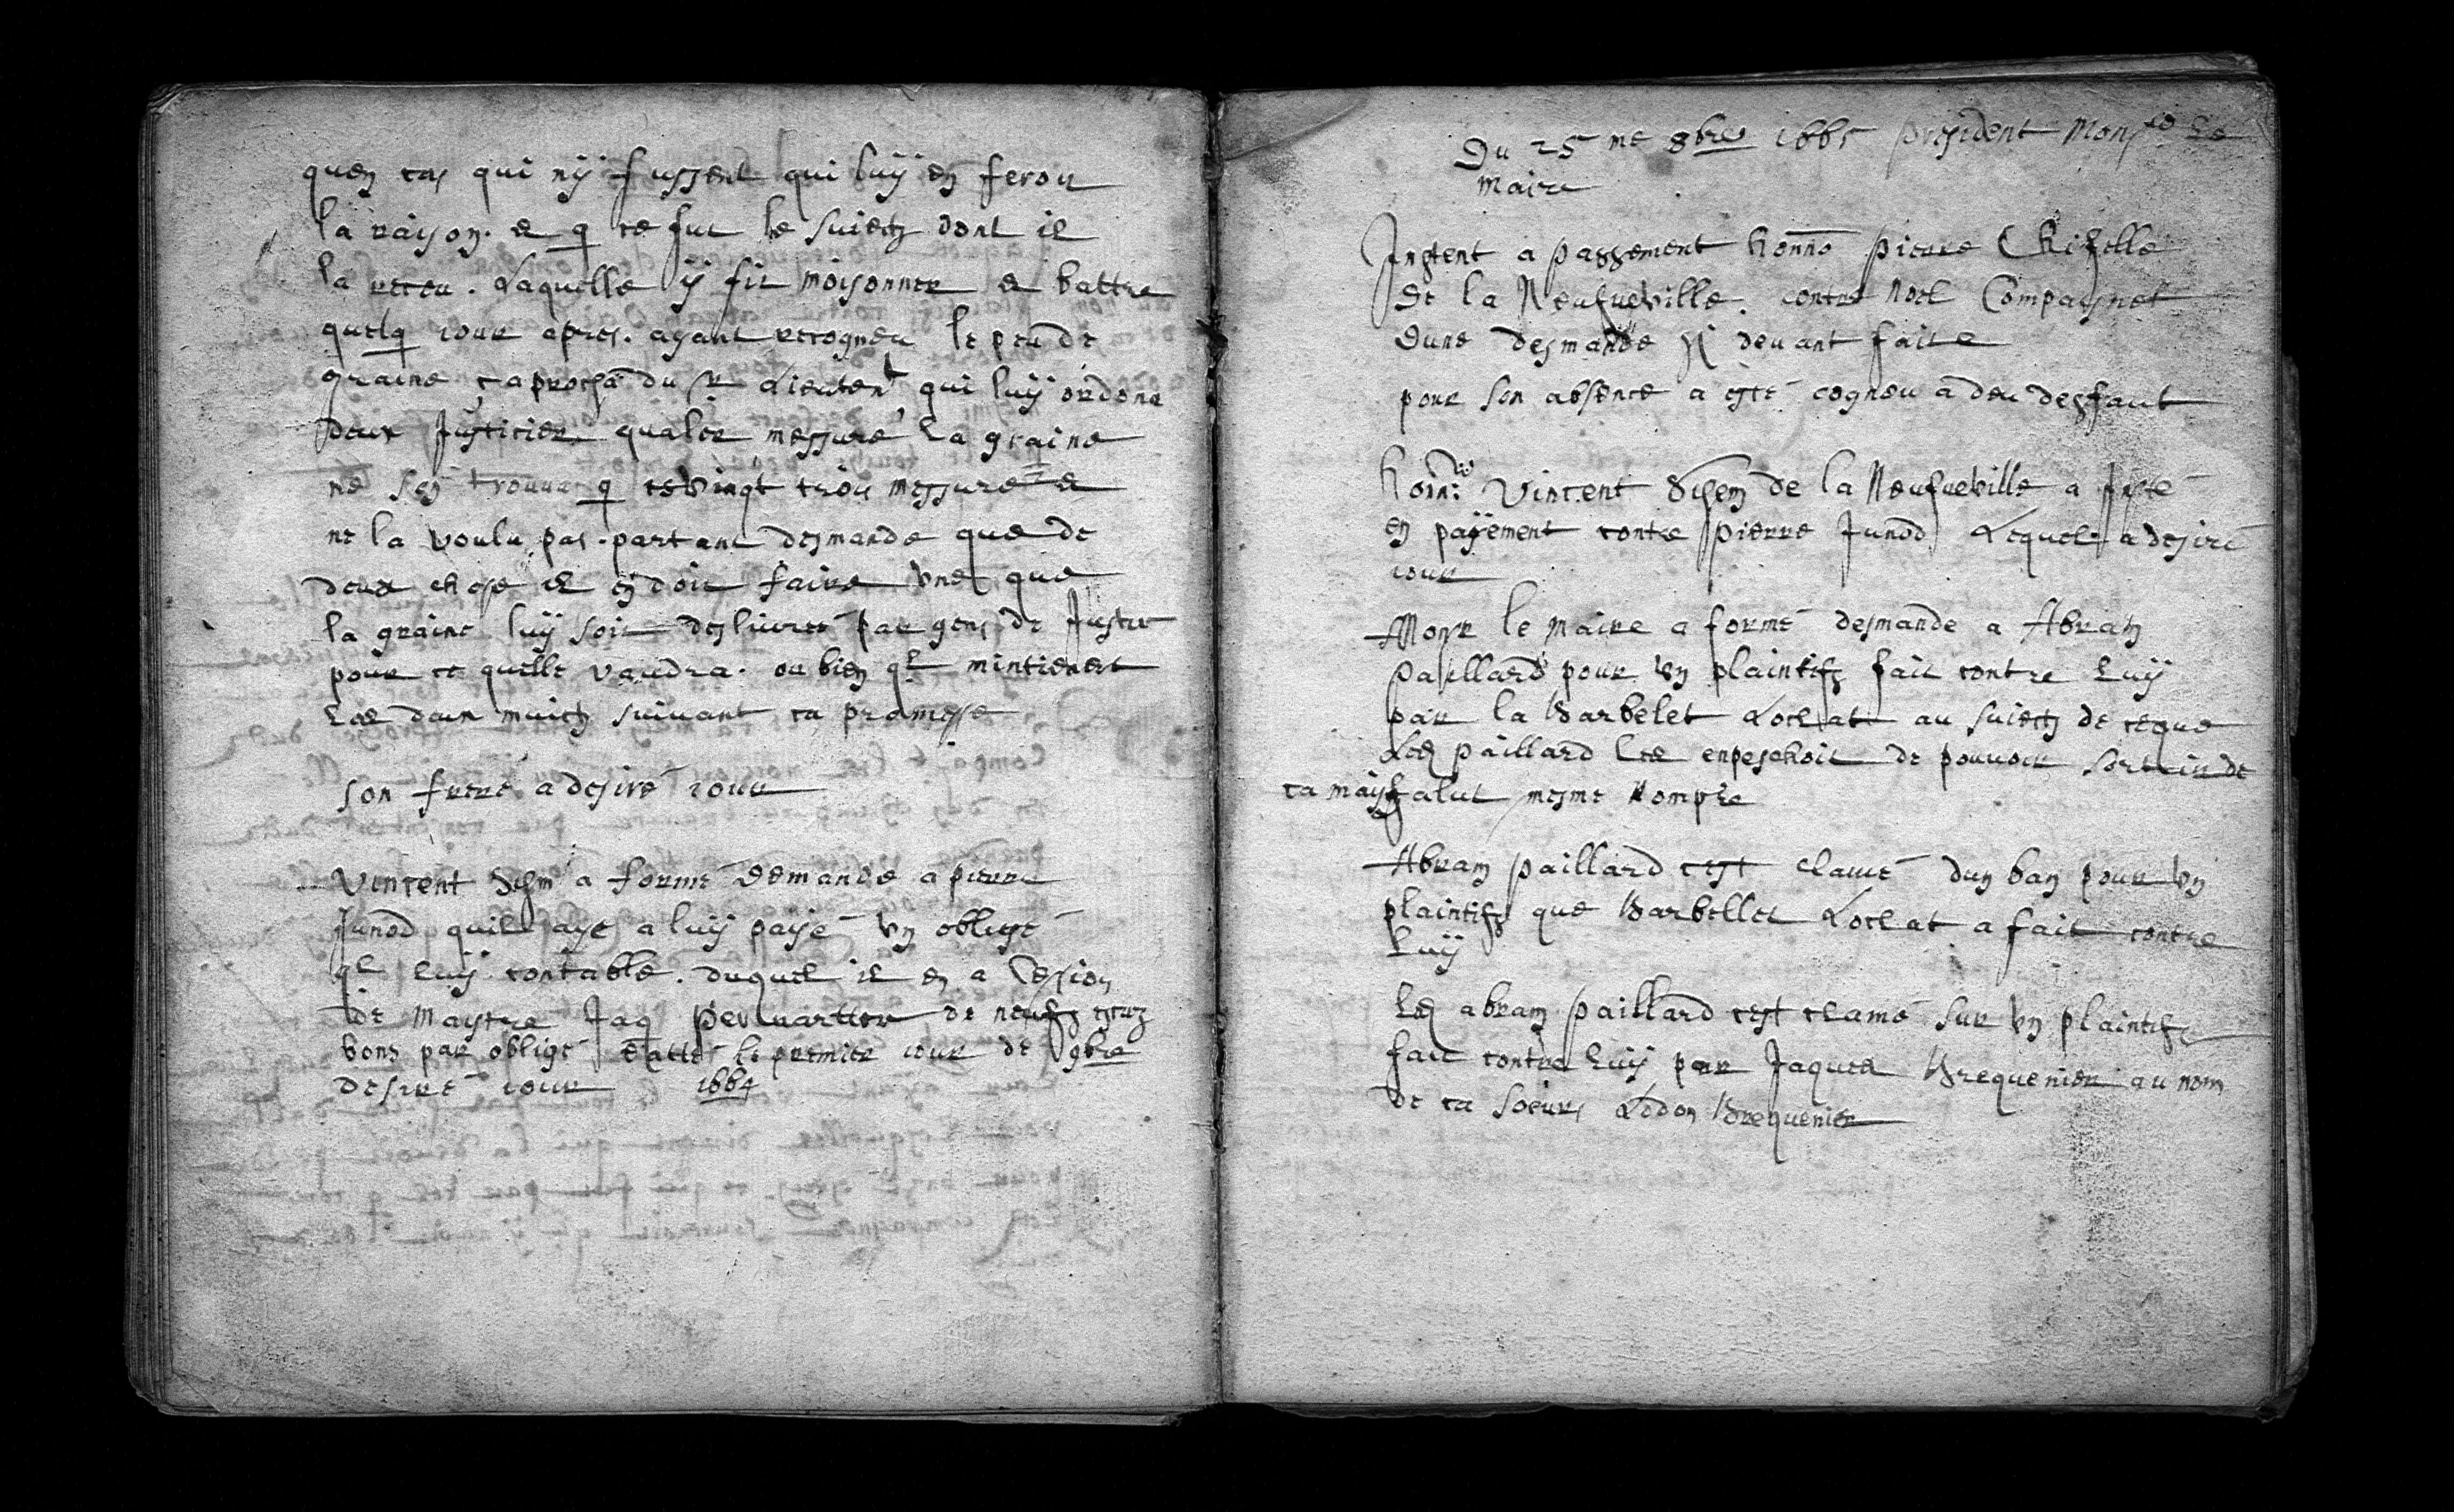 quen cas qui nÿ fussent qui luÿ en feroit
la raison. et q ce fut le suiect dont il
la receu. Laquelle ÿ fit moisonner et battre
quelq iour apres. ayant recogneu le peu de
graine s'aprocha du Sr Lieutent qui luÿ ordona
deux Justicier qualer messure la graine
ne sen trouua q vingt trois messure et
ne la voulu pas. partant desmande que de
deux chose il en doit faire vne que
la graine luÿ soit desliuree par gens de Justice
pour ce quelle vaudra. ou bien ql mintienent
les deux muich suiuant sa promesse
son frere a desiré iour
Vincent a formé demande a pierre
Junod quil aye a luÿ payé vn obligé
ql luÿ contable. duquel il en a Cession
de Maystre Jaq de neufz escuz
bons par obligé datté le premier iour de 9bre
desiré iour 1664
Du 25me 8bre 1665 president Monsr Le
Maire
Instent a passement honno pierre Chifelle
de la Neufueville. contre Noel Compagnet
dune desmande si deuant faite
pour son absence a esté cogneu a deu desfaut
honor Vincent de la Neufueville a Insté
en payement contre pierre Junod Lequel a desiré
iour
Monsr le Maire a formé desmande a Abram
Paillard pour vn plaintifz fait contre luÿ
par la Barbelet Loclat au suiect de ceque
Led paillard les enpeschoit de pouuoir sortir de
sa maison
Abram paillard cest clamé dun ban pour vn
plaintifz que Barbellet Loclat a fait contre
luÿ
Led abram paillard cest clamé sur vn plaintifz
fait contre luÿ par Jaques Brequenier au nom
de sa soeurs Brequenier